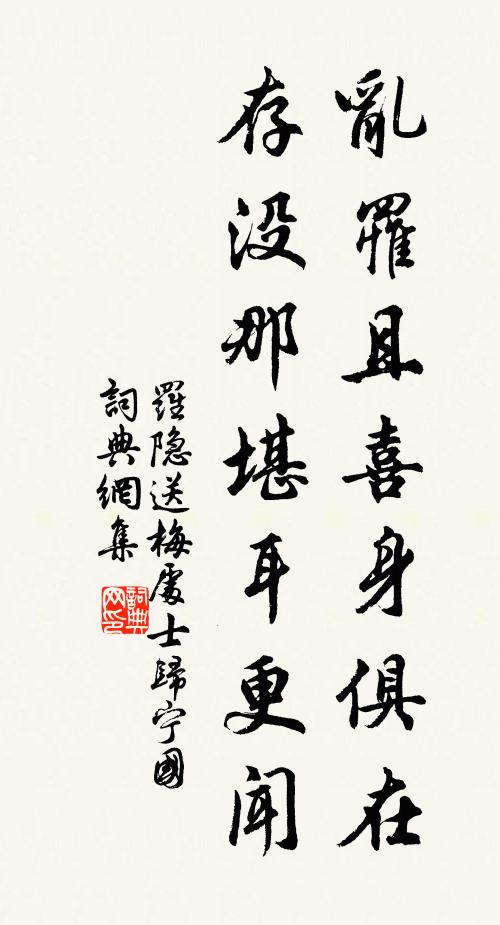 亂罹且喜身俱在
存没那堪耳更聞
羅隐送梅處士歸宁國
詞典網集
詞典网印